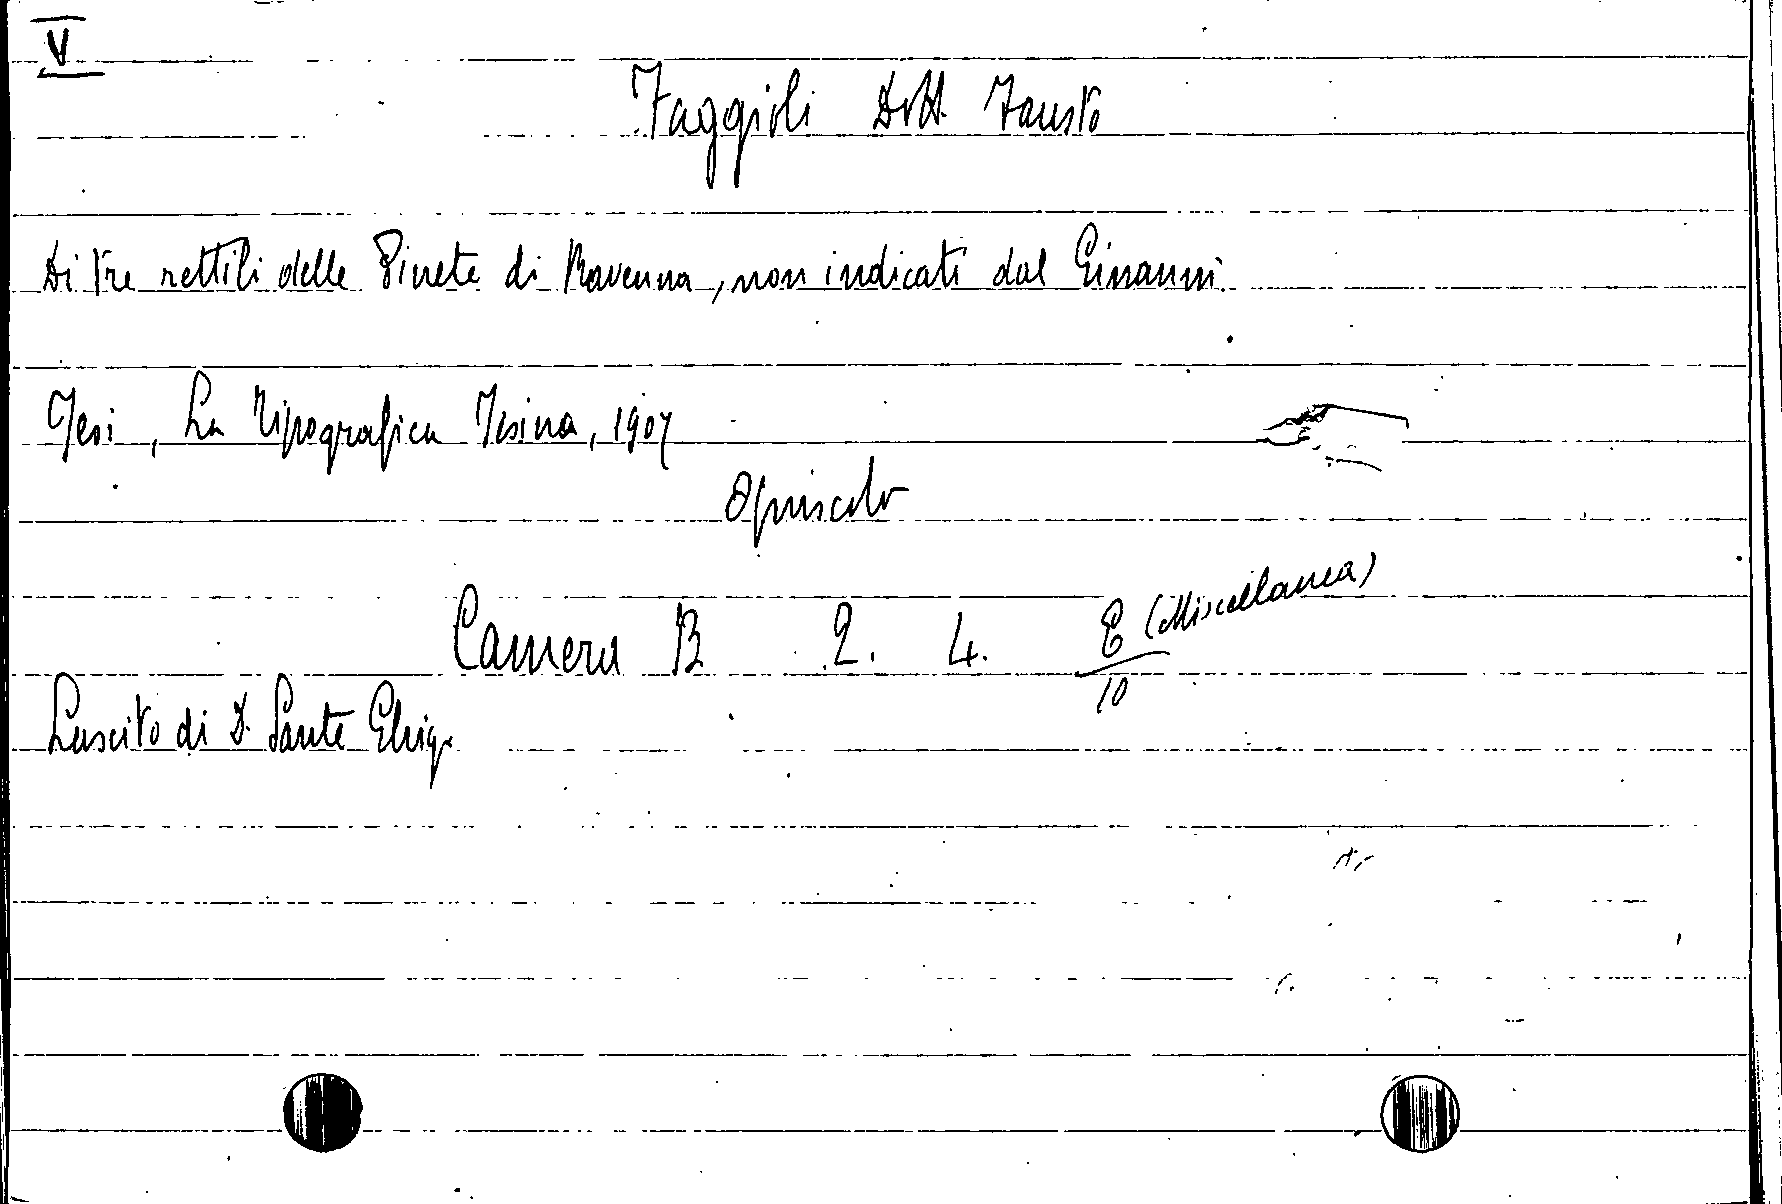 V
Faggioli Dott. Fausto
Di tre rettili delle Pinete di Ravenna, non indicati dal Ginanni.
Jesi, La Tipografica Jesina, 1907
Opuscolo
Camera B 2. 4. E/10 (Miscellanea)
Lascito di D. Sante Ghig.